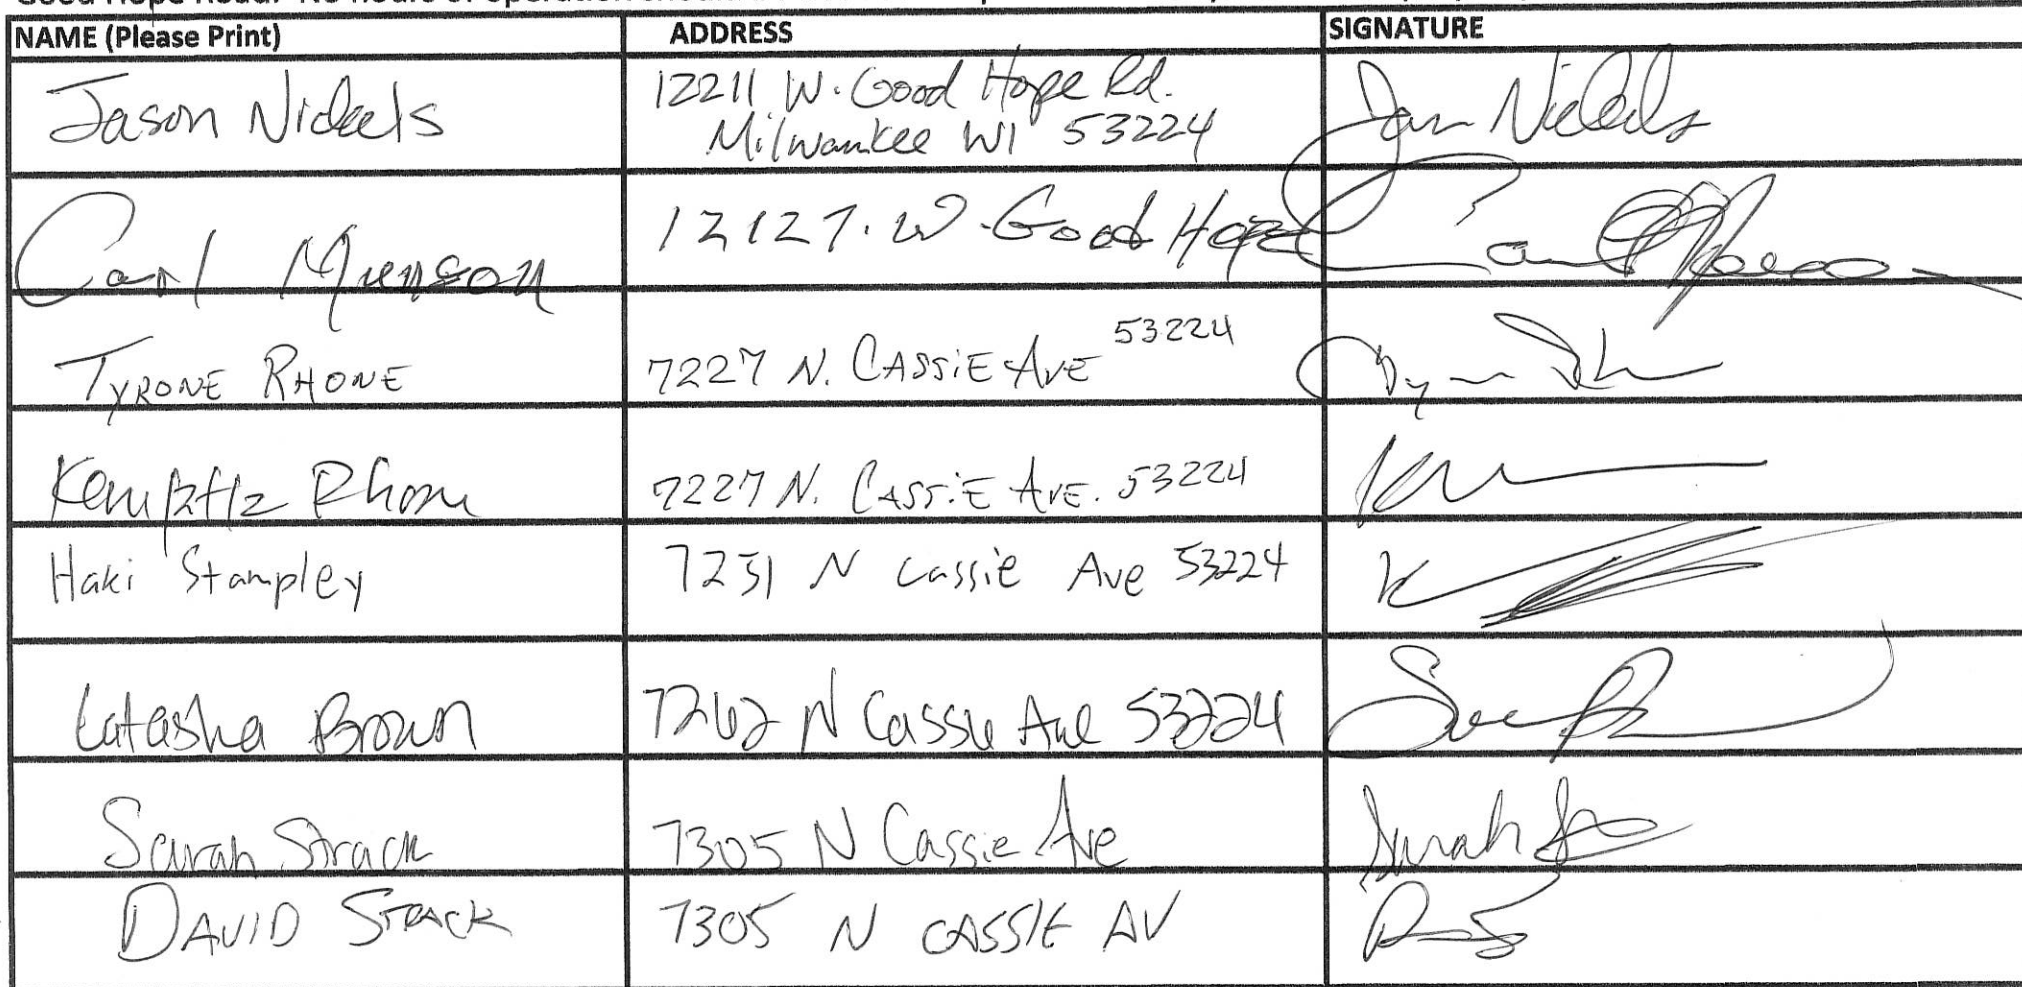 NAME (Please Print) ADDRESS SIGNATURE
Jason Nickels 12211 W. Good Hope Rd.
Milwaukee WI 53224
Carl Munson 12127. W. Good Hope
TYRONE RHONE 7227 N. CASSIE AVE 53224
Rhone 7227 N. CASSIE AVE. 53224
Haki Stampley 7231 N Cassie Ave 53224
Latasha Brown 7262 N Cassie Ave 53224
Sarah Strack 7305 N Cassie Ave Sarah
DAVID STRACK 7305 N CASSIE AV